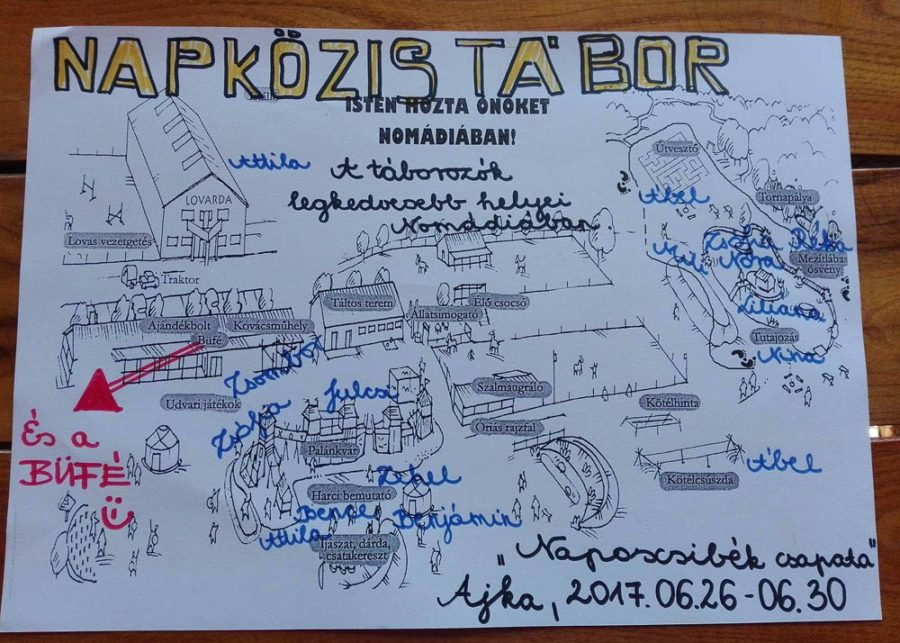 NAPKÖZIS TÁBOR
ISTEN HOZTA ÖNÖKET
NOMÁDIÁBAN!
A táborozók
legkedvesebb helyei
Nomádiában
Attila
LOVARDA
Lovas vezetgetés
Traktor
Útvesztő
Ábel
Tornapálya
Zsófia Réka
Mili Nóra
Mezítlábas
ösvény
Liliana
Tutajozás
Nina
Táltos terem
Élő csocsó
Állatsimogató
Ajándékbolt
Kovácsműhely
Büfé
Zsombor
Udvari játékok
Zsófia
Julcsi
Szalmaugráló
Óriás rajzfal
Kötélhinta
Palánkvár
Kötélcsúszda
Ábel
És a
BÜFÉ
Zétel
Harci bemutató
Bence
Benjámin
Attila
Íjászat, dárda,
csatakereszt
„Naposcsibék csapata"
Ajka, 2017.06.26-06.30